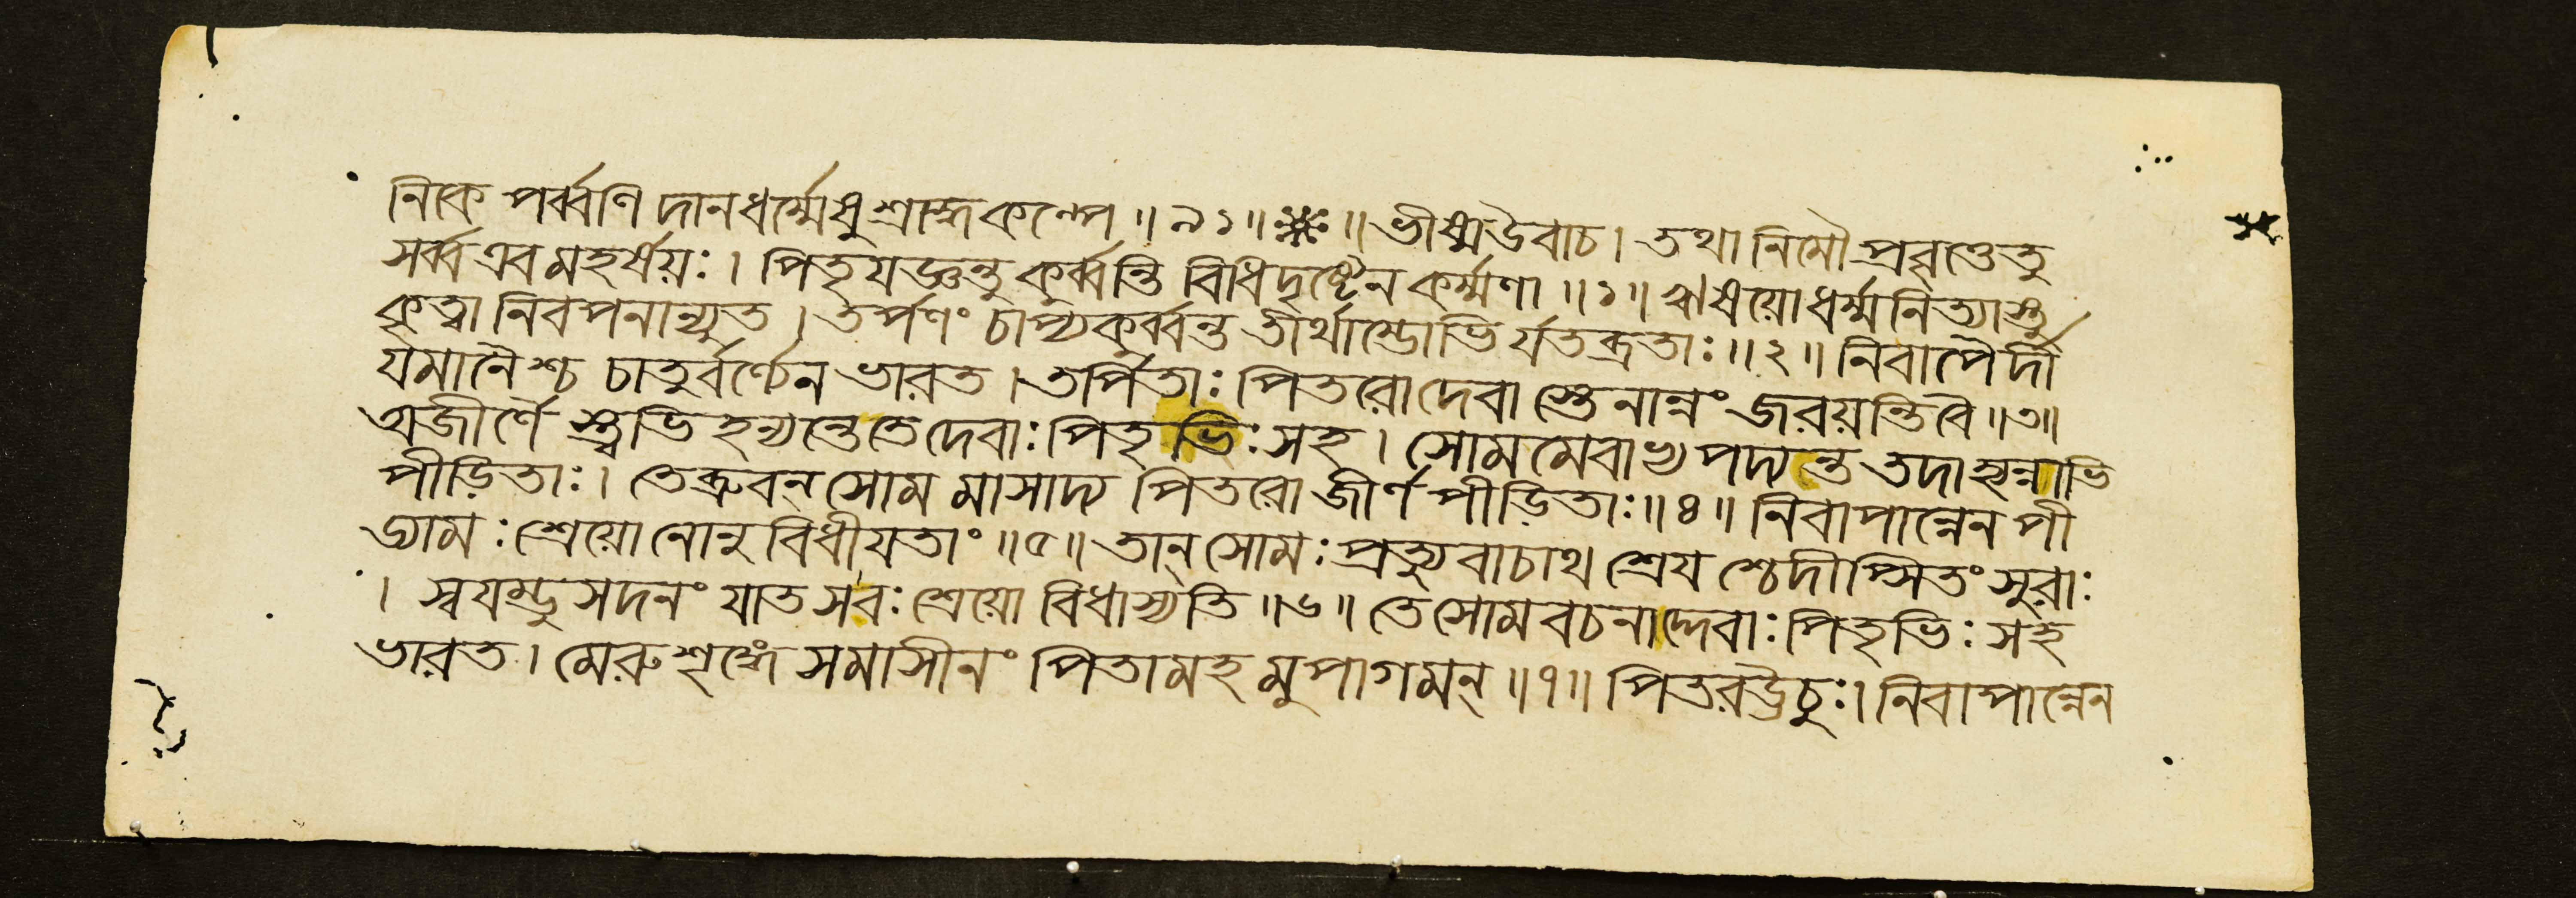 নিকে পর্ব্বণি দানধর্ম্মেষু শ্রাদ্ধকল্পে ॥ ৯১ ॥ ❋ ॥ ভীষ্মউবাচ । তথা নিমৌ প্রবৃত্তেতু
সর্ব্ব এব মহর্ষয়ঃ । পিতৃযজ্ঞন্তু কুর্ব্বন্তি বিধিদৃষ্টেন কর্ম্মণা ॥ ১ ॥ ঋষয়ো ধর্ম্মনিত্যাস্তু
কৃত্বা নিবপনান্যুত । তর্পণং চাপ্যকুর্ব্বন্ত তীর্থাম্ভোভির্যতব্রতাঃ ॥ ২ ॥ নিবাপৈর্দী
যমানৈশ্চ চাতুর্বর্ণ্যেন ভারত । তর্পিতাঃ পিতরো দেবাস্তেনান্নং জরয়ন্তি বৈ ॥ ৩ ॥
অজীর্ণে স্ত্বভিহন্যন্তে তে দেবাঃ পিতৃভিঃ সহ । সোমমেবাভ্যপদ্যন্ত তদাহ্যন্নাভি
পীড়িতাঃ । তেব্রুবন্ সোমমাসাদ্য পিতরো জীর্ণপীড়িতাঃ ॥ ৪ ॥ নিবাপান্নেন পী
ড্যামঃ শ্রেয়ো নোনুবিধীযতাং ॥ ৫ ॥ তান্ সোমঃ প্রত্যুবাচাথ শ্রেযশ্চেদীপ্সিতং সুরাঃ
। স্বযম্ভুসদনং যাত সবঃ শ্রেয়ো বিধাস্যতি ॥ ৬ ॥ তে সোমবচনাদ্দেবাঃ পিতৃভিঃ সহ
ভারত । মেরুশৃঙ্গে সমাসীনং পিতামহমুপাগমন্ ॥ ৭ ॥ পিতরঊচুঃ । নিবাপান্নেন